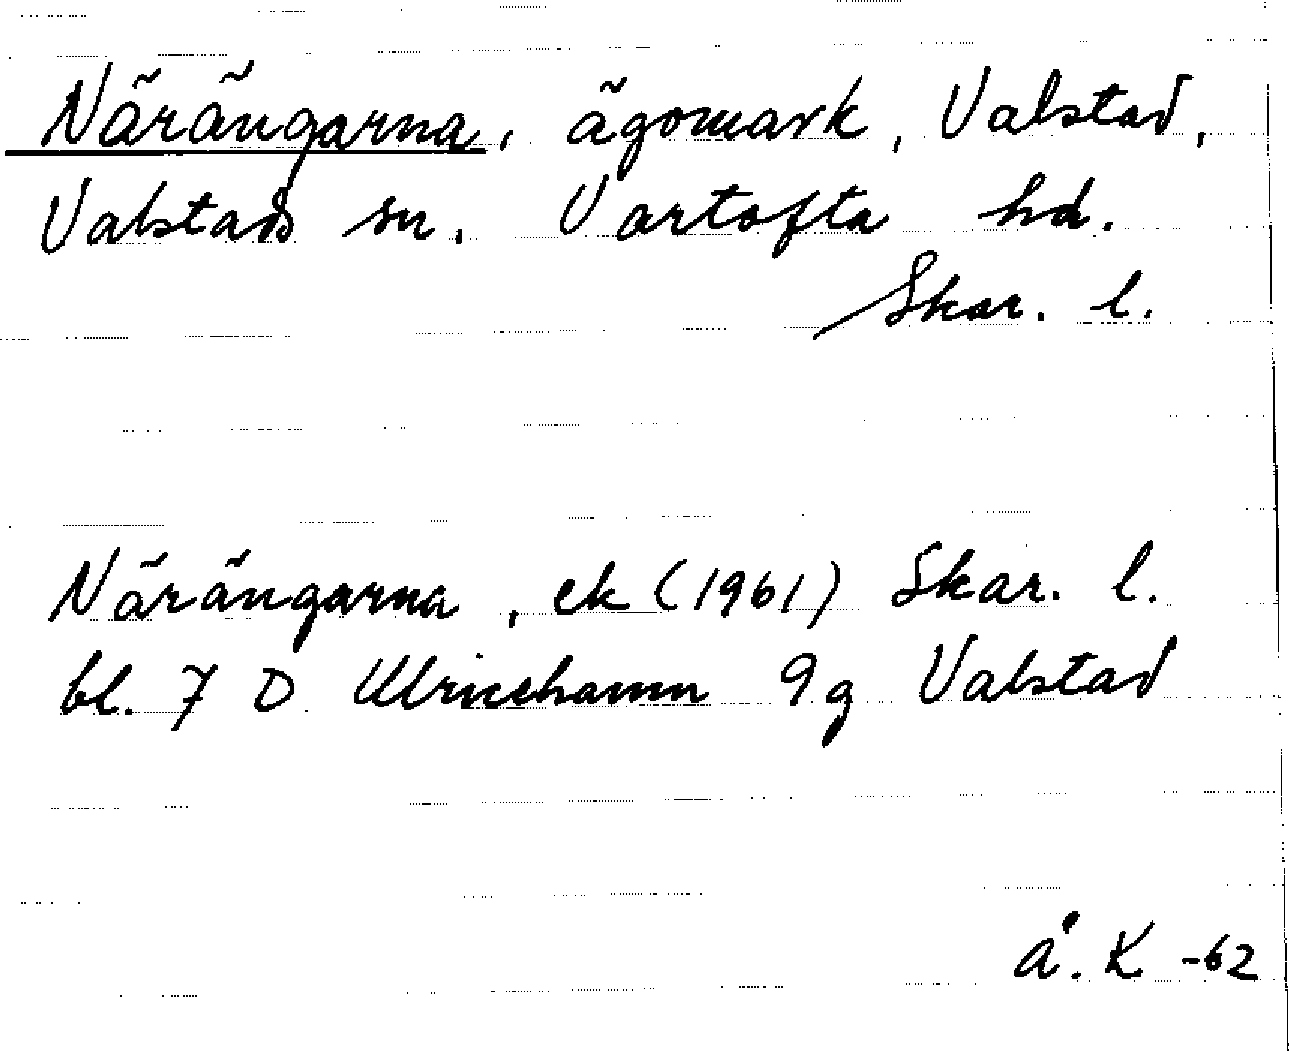 Närängarna, ägomark, Valstad,
Valstads sn. Vartofta hd.
Skar. l.
Närängarna, ek (1961) Skar. l.
bl. 7 D Ulricehamn 9g Valstad
Å. K -62